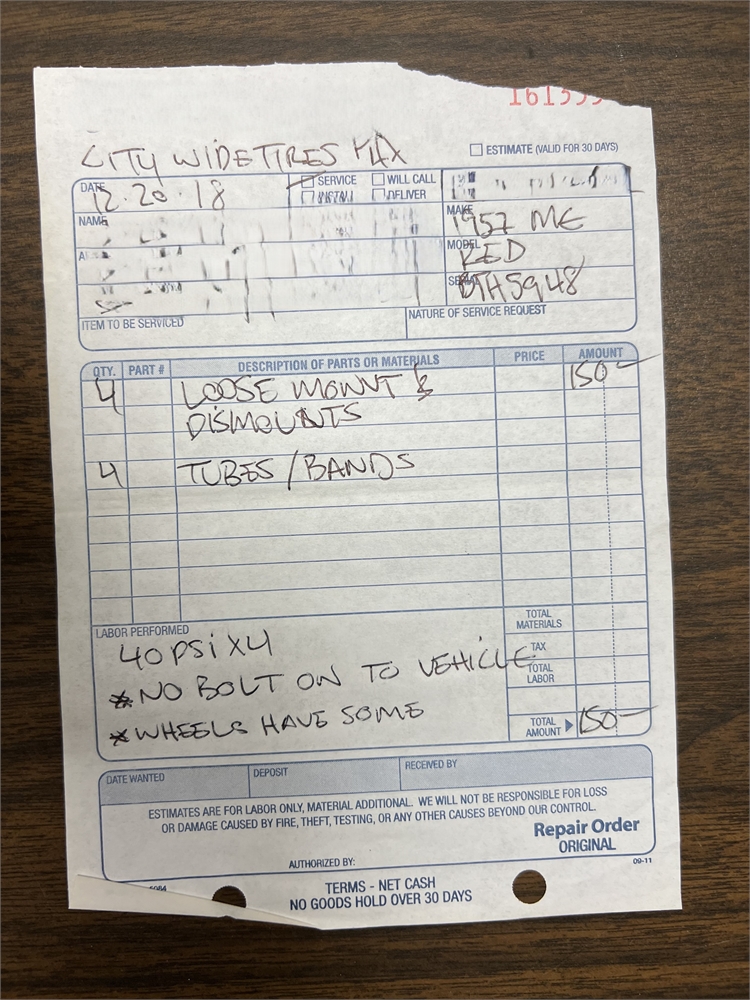 CITY WIDE TIRES
ESTIMATE (VALID FOR 30 DAYS)
DATE 12.20.18
SERVICE
WILL CALL
INSTALL
DELIVER
NAME
MAKE 1957 ME
MODEL RED
BTH5948
ITEM TO BE SERVICED
NATURE OF SERVICE REQUEST
QTY. PART # DESCRIPTION OF PARTS OR MATERIALS PRICE AMOUNT
4 LOOSE MOUNT & 150-
DISMOUNTS
4 TUBES/BANDS
LABOR PERFORMED
40 PSi X4
* NO BOLT ON TO VEHICLE
* WHEELS HAVE SOME
TOTAL MATERIALS
TAX
TOTAL LABOR
TOTAL AMOUNT 150-
DATE WANTED DEPOSIT RECEIVED BY
ESTIMATES ARE FOR LABOR ONLY, MATERIAL ADDITIONAL. WE WILL NOT BE RESPONSIBLE FOR LOSS
OR DAMAGE CAUSED BY FIRE, THEFT, TESTING, OR ANY OTHER CAUSES BEYOND OUR CONTROL.
Repair Order
ORIGINAL
AUTHORIZED BY:
09-11
TERMS - NET CASH
NO GOODS HOLD OVER 30 DAYS